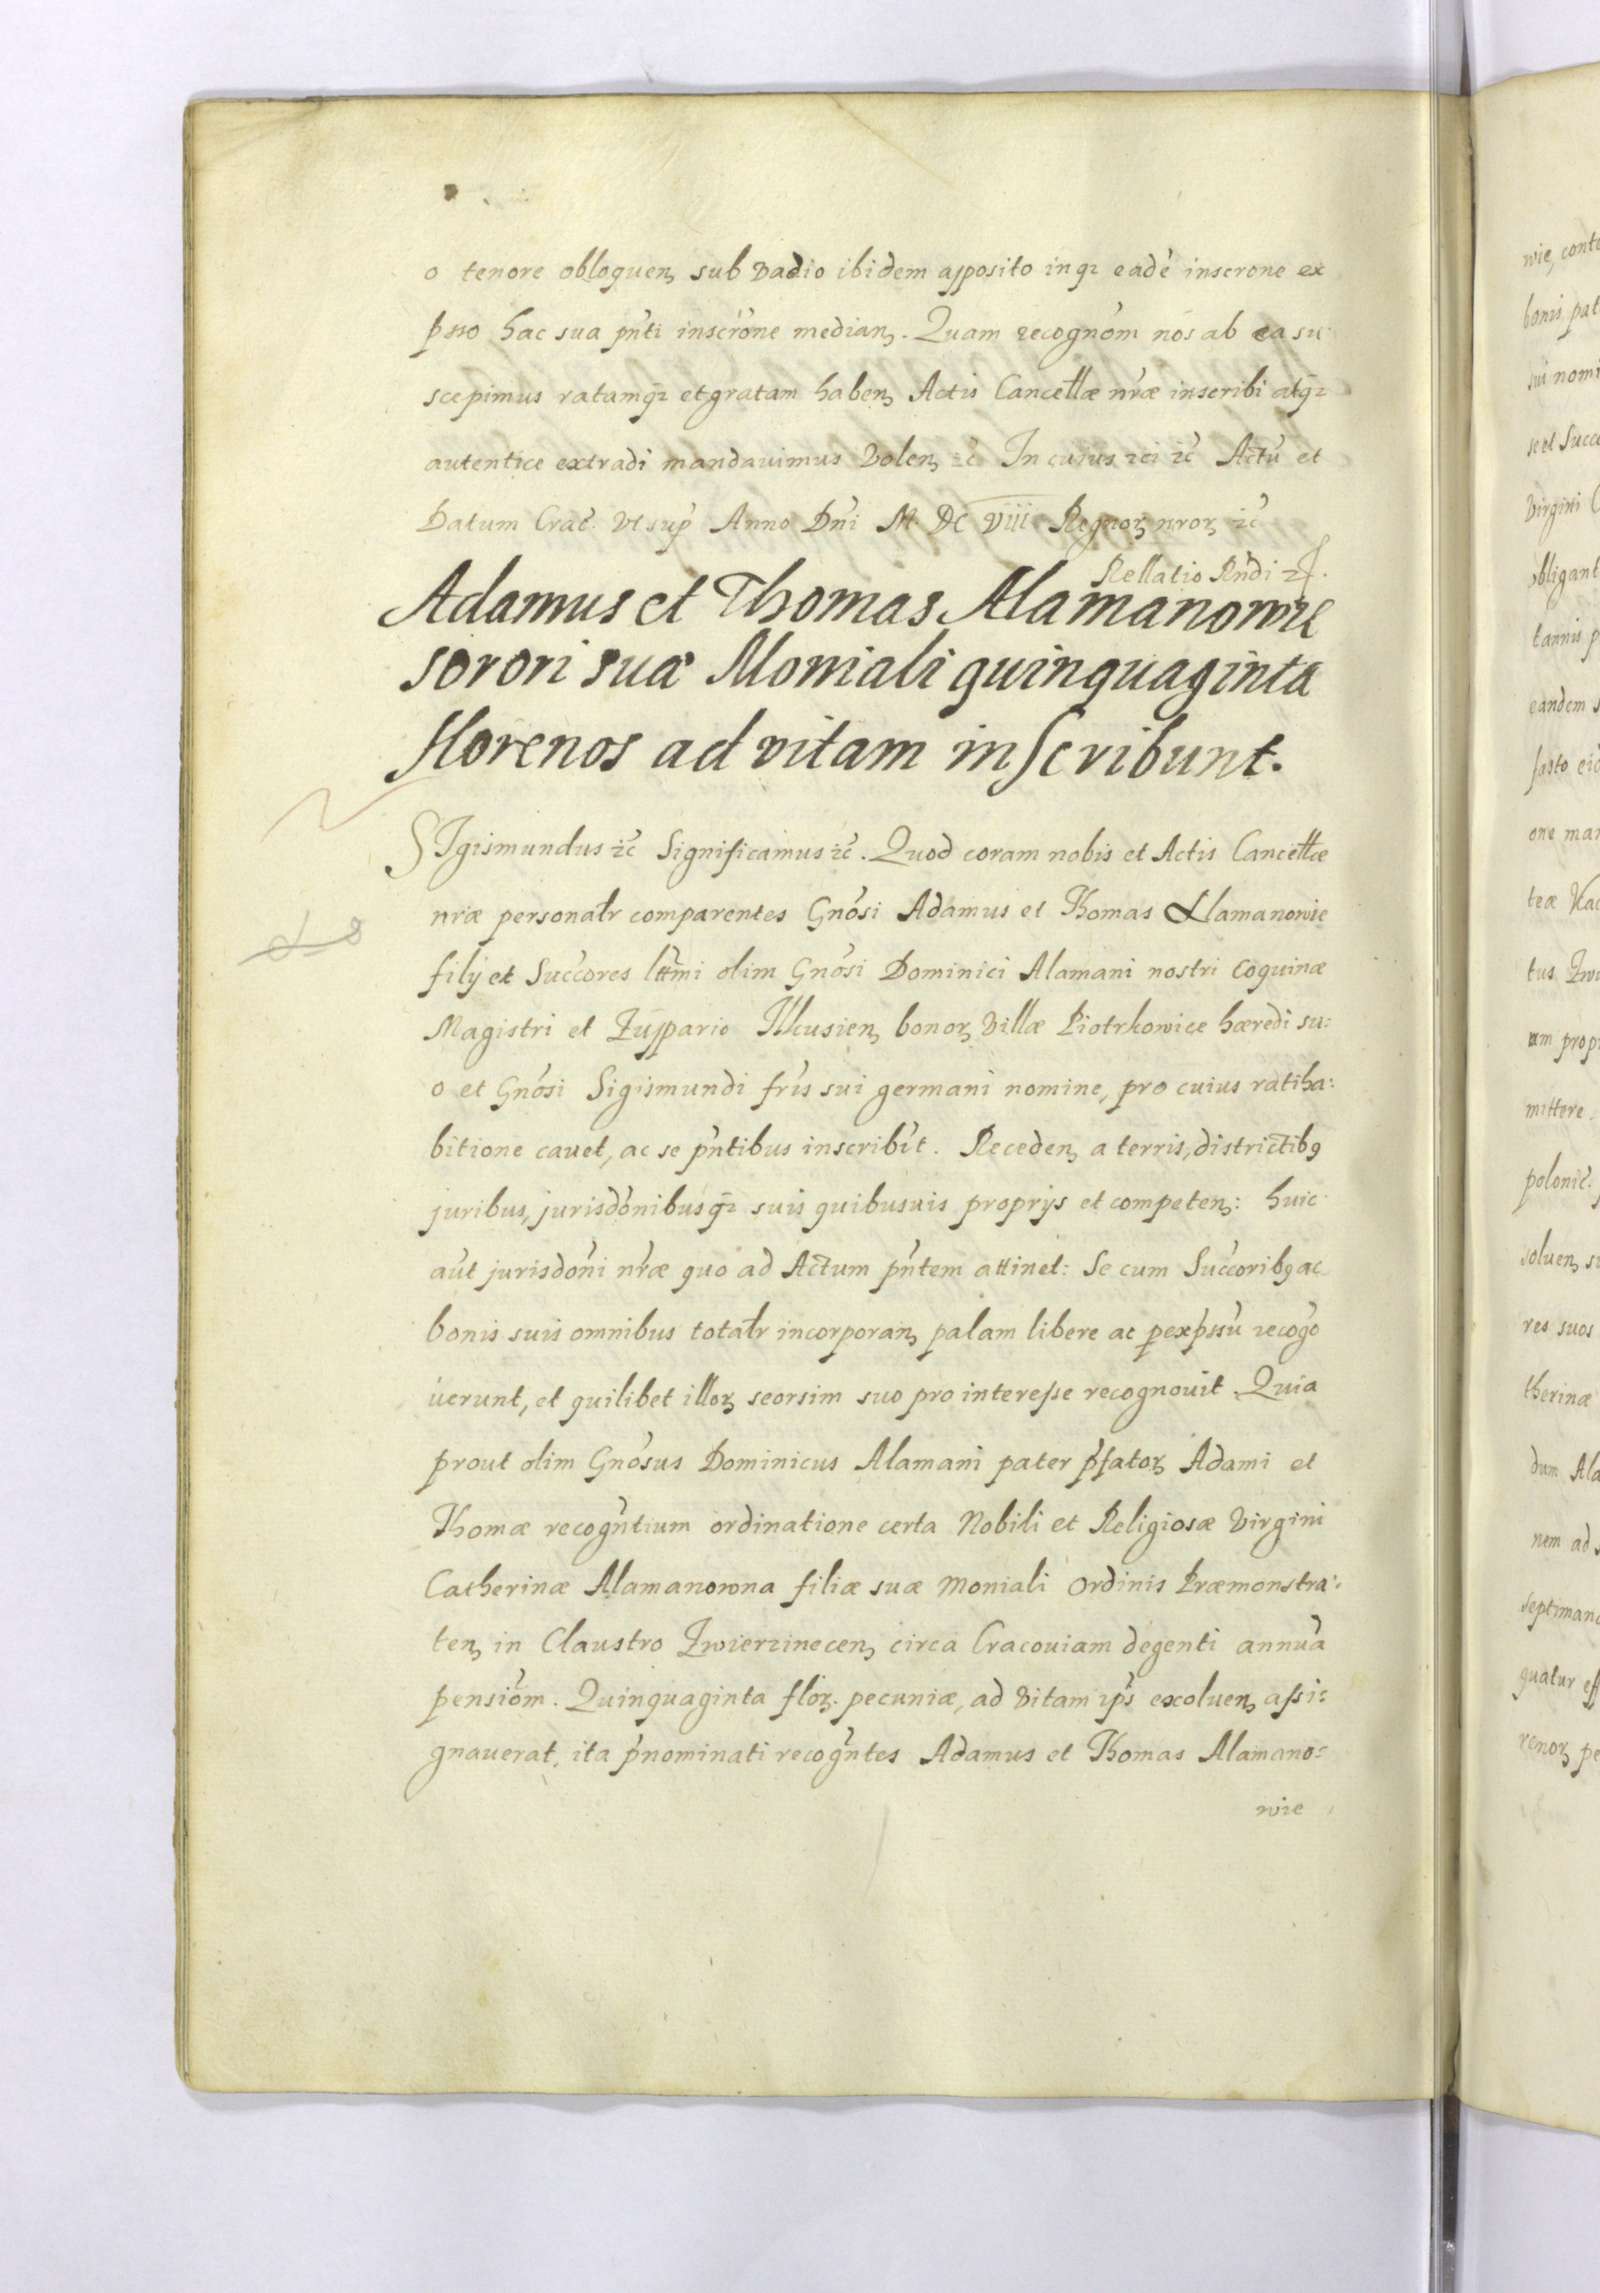 o tenore obloquenꝫ sub vadio ibidem apposito inqꝫ eadē inscr̃one ex
p̃sso hac sua p̃nti inscr̃one medianꝫ. Quam recogno͠m nos ab ea su:
scepimus ratamqꝫ et gratam habenꝫ Actis Cancellæ nr̃æ inscribi atqꝫ
autentice extradi mandauimus Volenꝫ ꝛc̃ In cuius rei ꝛc̃ Actũ et
Datum Crac̃. Vt sup̃ Anno Dñi M. DC VIII Regnoꝝ nr̃oꝝ ꝛc̃
Rellatio Rñdi
Adamus et Thomas Alamanowie
sorori suæ Moniali quinquaginta
florenos ad vitam inscribunt.
SIgismundus ꝛc̃ Significamus ꝛc̃. Quod coram nobis et Actis Cancellæ
nr̃æ personalr̃ comparentes Gnõsi Adamus et Thomas Alamanowie
filij et Succ̃ores lttm̃i olim Gnõsi Dominici Alamani nostri coquinæ
Magistri et Zuppario Ilkusienꝫ bonoꝝ Villæ Piotrkowice hæredi su:
o et Gnõsi Sigismundi fr̃is sui germani nomine, pro cuius ratiha:
bitione cauet, ac se p̃ntibus inscribit̃. Recedenꝫ a terris, districtibꝰ
juribus, jurisdõnibusqꝫ suis quibusuis proprijs et competenꝫ: huic
aũt jurisdõni nr̃æ quo ad Actum p̃ntem attinet: Se cum Succ̃oribꝰ ac
bonis suis omnibus totalr̃ incorporanꝫ palam libere ac ꝑexp̃ssũ recog̃o
uerunt, et quilibet illoꝝ seorsim suo pro interesse recognouit Quia
prout olim Gnõsus Dominicus Alamani pater p̃fatoꝝ Adami et
Thomæ recog̃ntium ordinatione certa Nobili et Religiosæ Virgini
Catherinæ Alamanowna filiæ suæ Moniali Ordinis Præmonstra:
tenꝫ in Claustro Zwierzinecenꝫ circa Cracouiam degenti annũa
pensiõm. Quinquaginta floꝝ. pecuniæ, ad Vitam ip̃s exoluenꝫ assi:
gnauerat, ita p̃nominati recog̃ntes Adamus et Thomas Alamano:
wie
wie, cont
bonis pat
sui nomi
se et Succ
Virgini C
obligant
tannis p
eandem s
fasto eid
one man
teæ
tus Zwi
um propr
mittere
polonic̃.
soluenꝫ su
res suos
therinæ
dum Ala
nem ad
septimana
quatur eff
renoꝝ pe